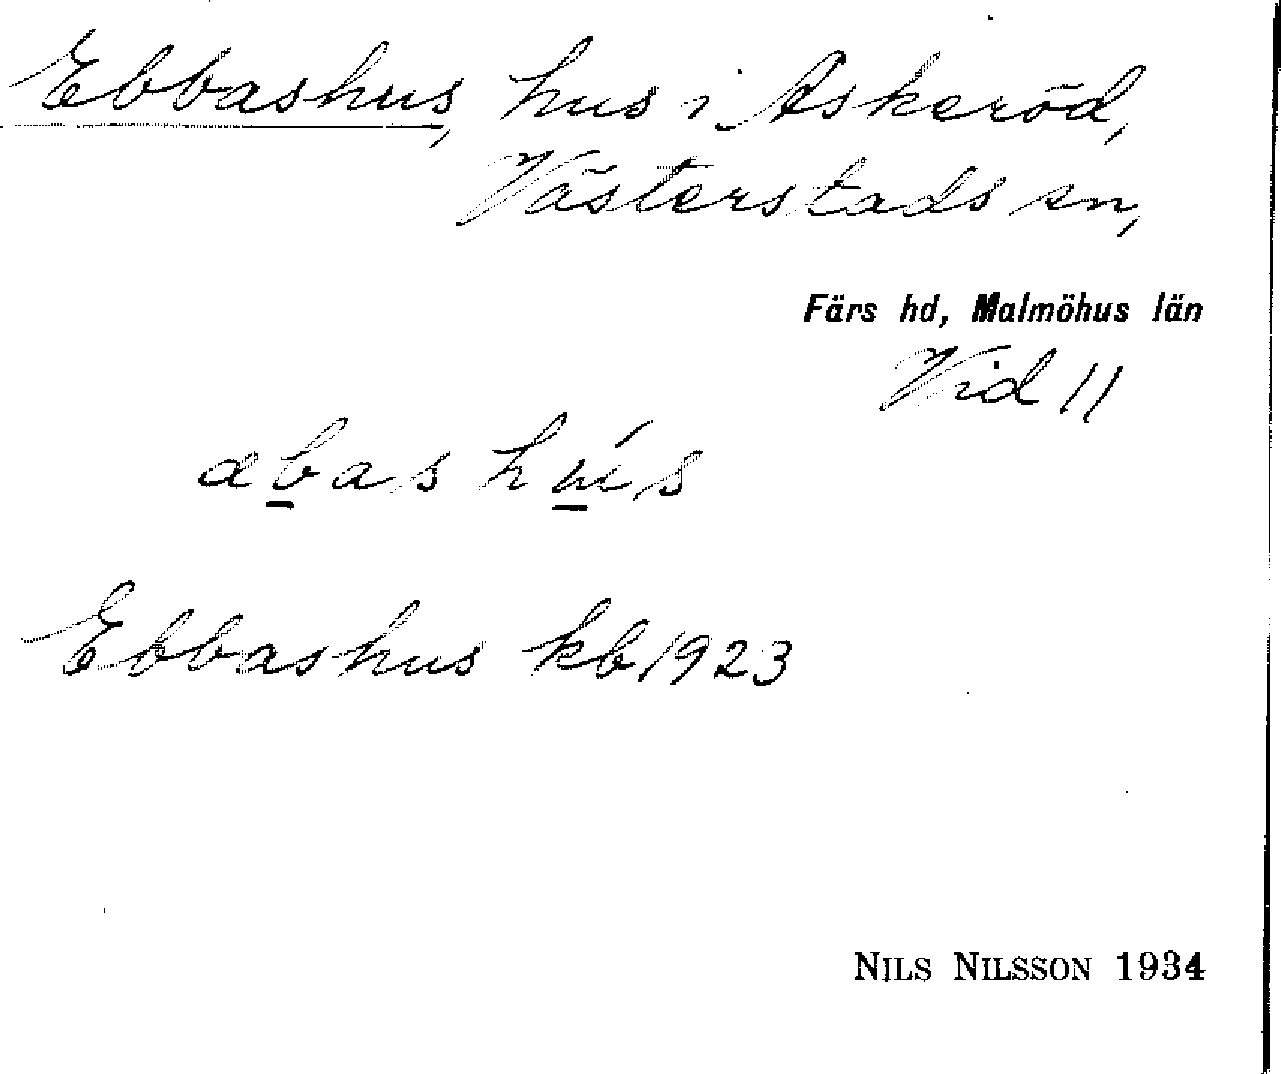 Ebbashus, hus i Askeröd,
Västerstads sn,
Färs hd, Malmöhus län
Vid 11
Ebbashus kb 1923
NILS NILSSON 1934